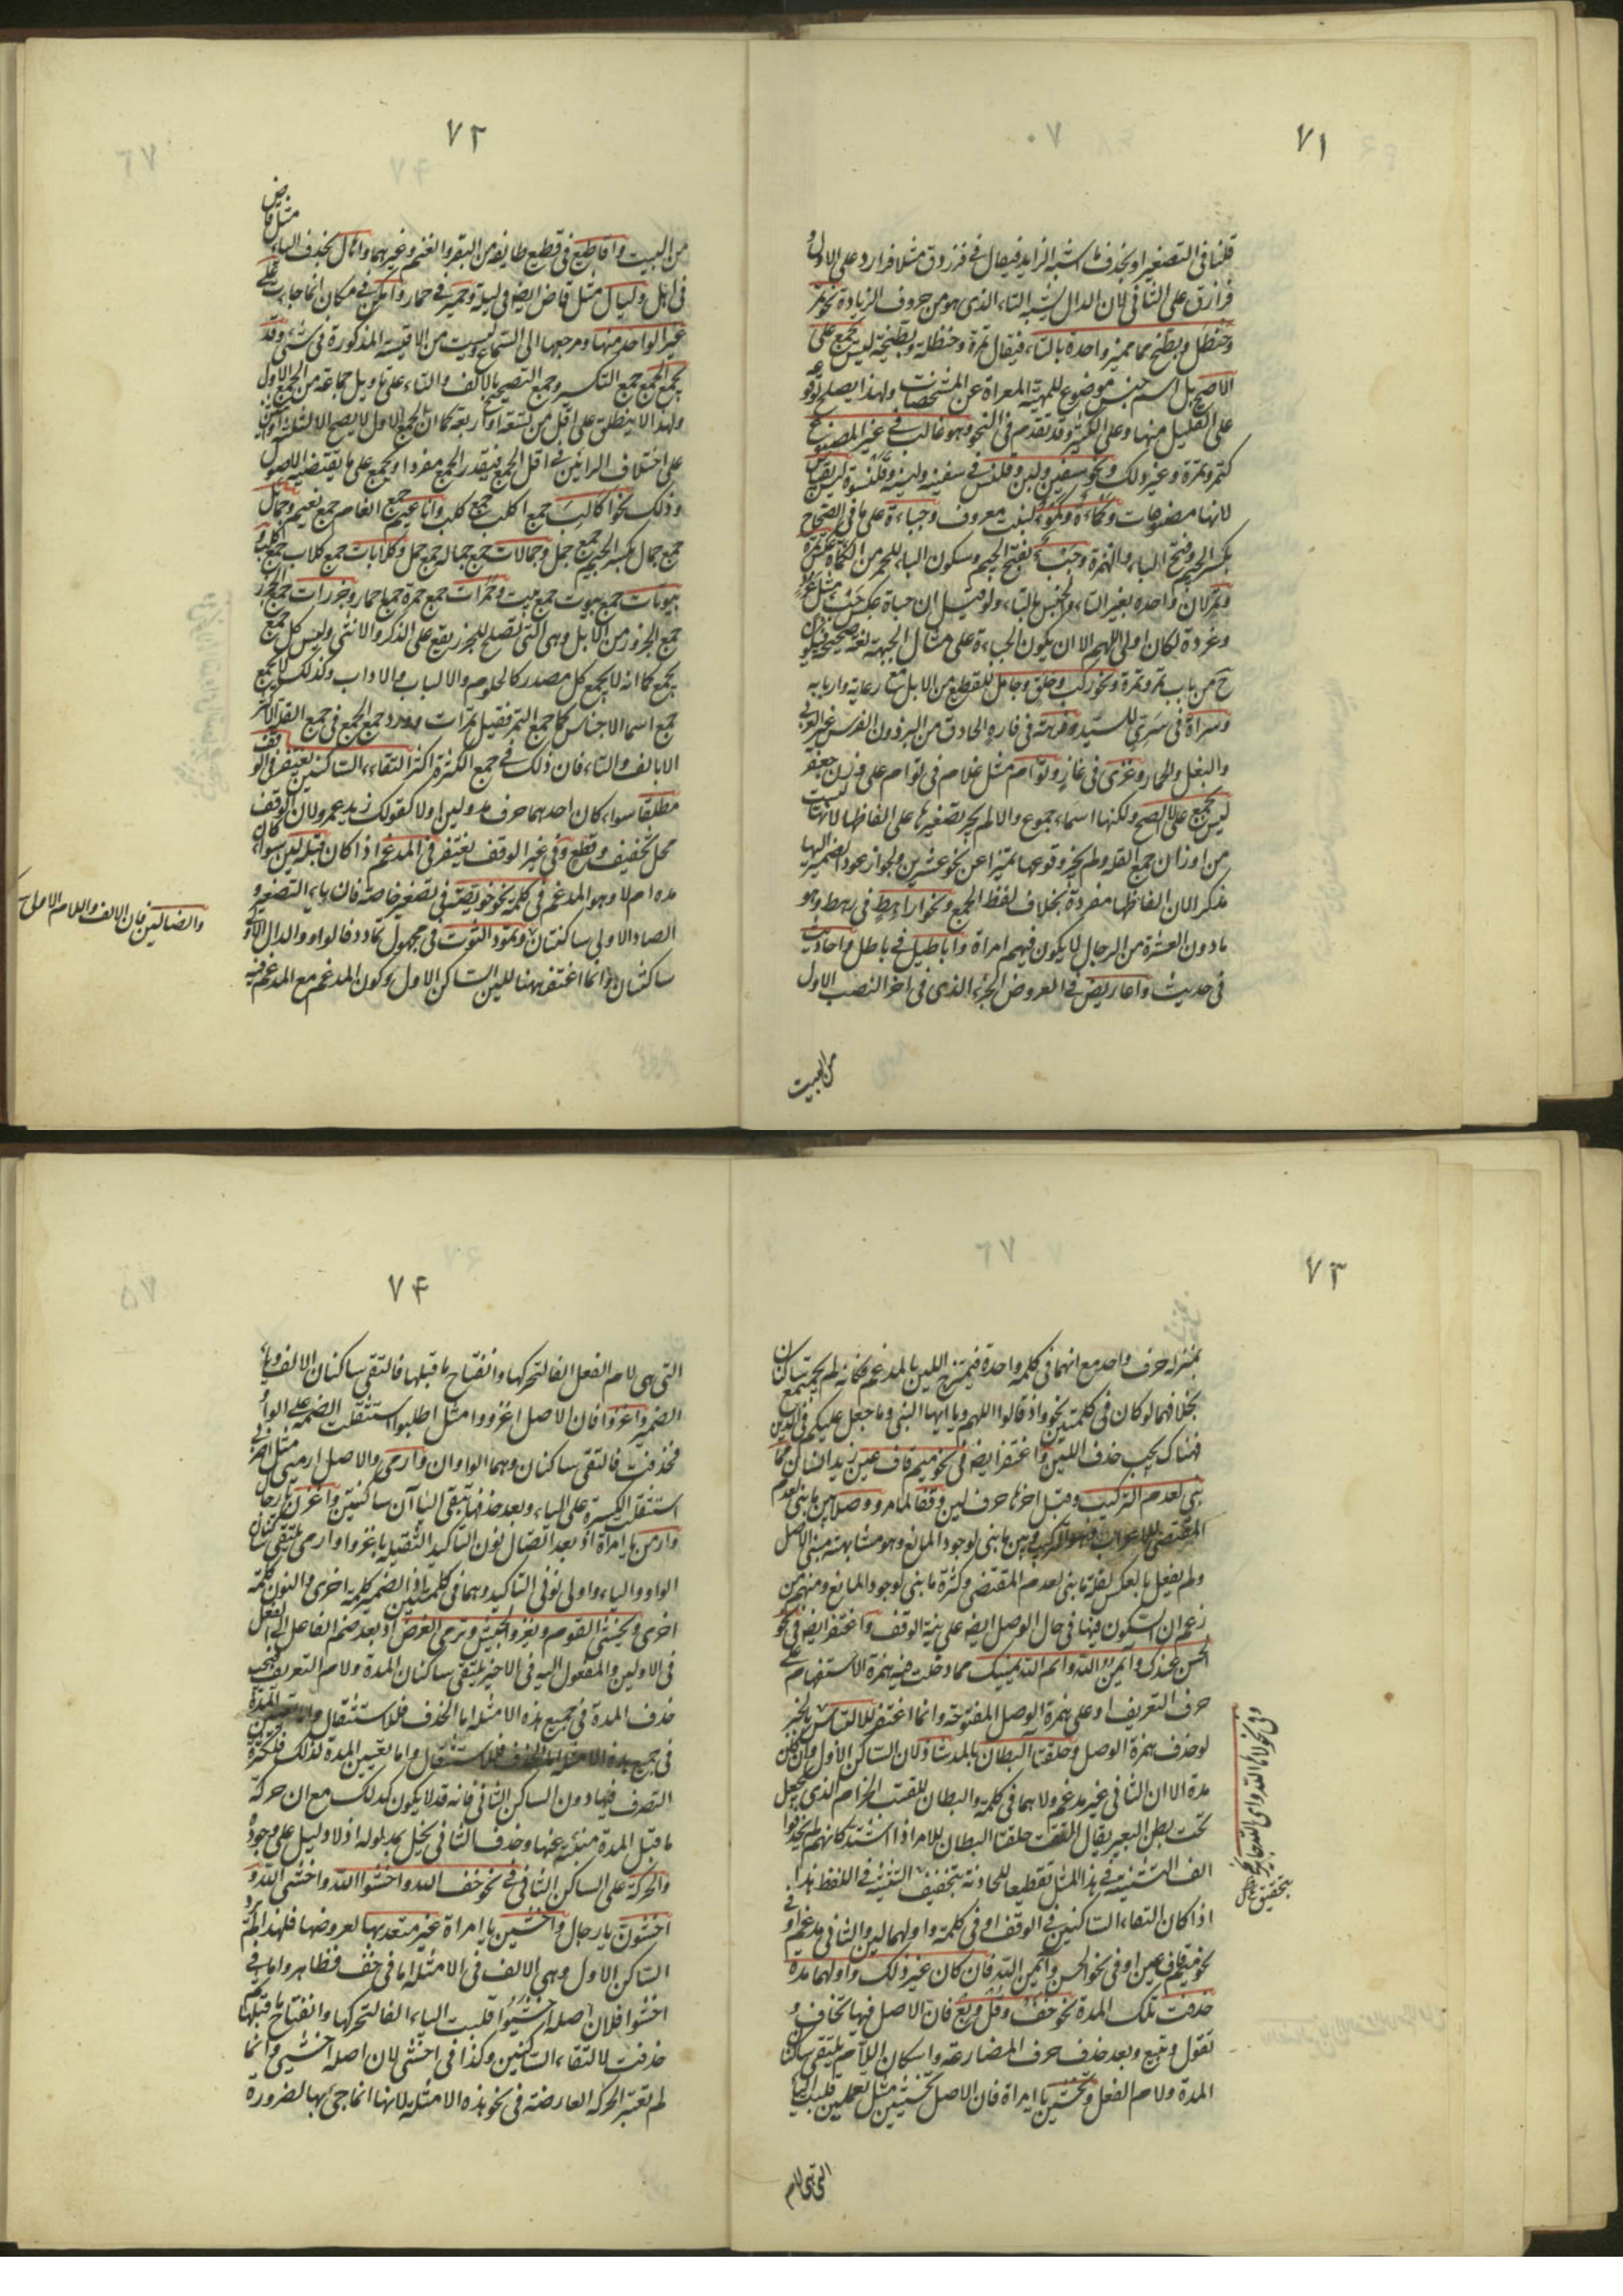 ٧١
قلنا فى التصغير او بحذف ما اشبه الزايد فيقال فى فرزدق مثلا فرازد على الاول و
فرازق على الثانى لان الدال يشبه التاء الذى هو من حروف الزيادة ونحو تمر
وحنظل وبطيخ مما مميز واحده بالتاء فيقال تمرة وحنظلة وبطيخة ليس بجمع على
الاصح بل اسم جنس موضوع للمهية المعراة عن المشخصات ولهذا يصلح لوقوعه
على القليل منها وعلى الكثير وقد تقدم فى النحو وهو غالب فى غير المصنوع
كتمر وتمرة وغير ذلك ونحو سفين ولبن وقلنس فى سفينة ولبنة وقلنسوة ليس بقياس
لانها مصنوعات وكمأة وكمؤ لنبت معروف وجباءة على ما فى الصحاح
بكسر الجيم وفتح الباء والهمزة وجبء بفتح الجيم وسكون الباء للحمر من الكمأة عكس تمرة
وتمر لان واحده بغير التاء والجنس بالتاء ولو قيل ان جباة عكس جبء مثل غرد
وغردة لكان اولى اللهم الا ان يكون الجباءة على مثال الجبهة لغة صحيحة فيكون
ح من باب تمر وتمرة ونحو ركب وحلق وجامل للقطيع من الابل مع رعاته واربابه
وسراة فى سرى للسيد وفرهة فى فاره الحاذق من البرذون الفرس غير العربى
والبغل والحمار وغزى فى غاز وتوأم مثل غلام فى توأم على وزن جعفر
ليس بجمع على الاصح ولكنها اسماء جموع والا لم يجز تصغيرها على الفاظها لانها ليست
من اوزان جمع القلة ولم يجز وقوعها تميزا عن نحو عشرين ولجواز عود الضمير اليها
مذكرا لان الفاظها مفردة بخلاف لفظ الجمع ونحو اراهط فى رهط وهو
ما دون العشرة من الرجال لا يكون فيهم امراة واباطيل فى باطل واحاديث
فى حديث واعاريض فى العروض الجزء الذى فى اخر النصف الاول
من البيت
٧٢
من البيت واقاطيع فى قطيع طايفة من البقر والغنم وغيرهما واهال بحذف الياء مثل قاض
فى اهل وليال مثل قاض ايضا فى ليلة وحمير فى حمار وامكن فى مكان انما جاءت على
غير الواحد منها ومرجعها الى السماع وليست من الاقيسة المذكورة فى شئ وقد
يجمع الجمع جمع التكسير وجمع التصحيح بالالف والتاء على تاويل جماعة من الجمع الاول
ولهذا لا ينطلق على اقل من تسعة او اربعة كما ان الجمع الاول لا يصح الا لثلثة او اثنين
على اختلاف الرائين فى اقل الجمع فيقدر الجمع مفردا ويجمع على ما يقتضيه الاصول
وذلك نحو اكالب جمع اكلب جمع كلب واناعيم جمع انعام جمع نعيم وجمائل
جمع جمال بكسر الجيم جمع جمل وجمالات جمع جمالة جمع جمل وكلابات جمع كلاب جمع كلب و
بيوتات جمع بيوت جمع بيت وحمرات جمع حمرة جمع حمار وجزرات جمع الجزر
جمع الجزور من الابل وهى التى تصلح للجزر يقع على الذكر والانثى وليس كل جمع
يجمع كما انه لا يجمع كل مصدر كالحلوم والالباب والاداب وكذلك لا يجمع
جمع اسماء الاجناس كما جمع التمر فقيل تمرات وورد جمع الجمع فى جمع القلة اكثر
الا بالف والتاء فان ذلك فى جمع الكثرة اكثر التقاء الساكنين يغتفر فى الوقف
مطلقا سواء كان احدهما حرف مد ولين او لا كقولك زيد عمرو لان الوقف
محل تخفيف وقطع وفى غير الوقف يغتفر فى المدغم اذا كان قبله لين سواء كان
مدة ام لا وهو المدغم فى كلمة نحو خويصة فى تصغير خاصة فان ياء التصغير و
الصاد الاولى ساكنتان وتمود الثوب فى مجهول تمادد فالواو والدال الاولى
ساكنتان وانما اغتفر ههنا للين الساكن الاول ولكون المدغم مع المدغم فيه
والضالين فان الالف واللام الاولى
٧٣
بمنزلة حرف واحد مع انهما فى كلمة واحدة فيمتزج اللين بالمدغم فكانه لم يجتمع ساكنان
بخلافهما لو كان فى كلمتين نحو واذ قالوا اللهم ويا ايها النبى وما جعل عليكم فى الدين
فهناك يجب حذف اللين واغتفر ايضا فى نحو ميم قاف عين زيد انسان مما
بنى لعدم التركيب وقبل اخرها حرف لين وقفا لما مر ووصلا بين ما بنى لعدم
المقتضى للاعراب وهو التركيب وبين ما بنى لوجود المانع وهو مشابهة مبنى الاصل
ولم يفعل بالعكس لقلة ما بنى لعدم المقتضى وكثرة ما بنى لوجود المانع ومنهم من
زعم ان السكون فيها فى حال الوصل ايضا على نية الوقف واغتفر ايضا فى نحو
الحسن عندك وآيمن الله وايم الله يمينك مما دخلت فيه همزة الاستفهام على
حرف التعريف او على همزة الوصل المفتوحة وانما اغتفر للالتباس بالخبر
لو حذف همزة الوصل وحلقتا البطان بالمد شاذ لان الساكن الاول وان كان
مدة الا ان الثانى غير مدغم ولا هما فى كلمة والبطان للقتب الحزام الذى يجعل
تحت بطن البعير يقال التقت حلقتا البطان للامر اذا اشتد كانهم لم يحذفوا
الف التثنية فى هذا المثل تقطيعا للحادثة بتحقيق التثنية فى اللفظ هذا
اذا كان التقاء الساكنين فى الوقف او فى كلمة واولهما لين والثانى مدغم او فى
نحو ميم قاف عين او فى نحو الحسن وآيمن الله فان كان غير ذلك واولهما مدة
حذفت تلك المدة نحو خف وقل وبع فان الاصل فيها تخاف و
تقول وتبيع وبعد حذف حرف المضارعة واسكان اللام يلتقى ساكنان
المدة ولام الفعل وتخشين يا امراة فان الاصل تخشيين مثل تعلمين قلبت الياء
وفى نحو لاها الله واى الله جايز
التى هى لام
٧۴
التى هى لام الفعل الفا لتحركها وانفتاح ما قبلها فالتقى ساكنان الالف وياء
الضمير واغزوا فان الاصل اغزووا مثل اطلبوا استثقلت الضمة على الواو
فحذفت فالتقى ساكنان وهما الواوان وارمى والاصل ارميى مثل اضربى
استثقلت الكسرة على الياء وبعد حذفها تبقى اليا آن ساكنتين واغزن يا رجال
وارمن يا امراة اذ بعد اتصال نون التاكيد الثقيلة باغزوا وارمى يلتقى ساكنان
الواو والياء واولى نونى التاكيد وهما فى كلمتين اذ الضمير كلمة اخرى والنون كلمة
اخرى ويخشى القوم ويغزو الجيش ويرمى الغرض اذ بعد ضم الفاعل الى الفعل
فى الاولين والمفعول اليه فى الاخير يلتقى ساكنان المدة ولام التعريف فيجب
حذف المدة فى جميع هذه الامثلة اما الحذف فللاستثقال
فى جميع هذه الامثلة اما الحذف فللاستثقال واما تعيين المدة لذلك فلكثرة
التصرف فيها دون الساكن الثانى فانه قد لا يكون كذلك مع ان حركة
ما قبل المدة منبئة عنها وحذف الثانى يخل بمدلوله اذ لا دليل على وجوده
والحركة على الساكن الثانى فى نحو خف الله واخشوا الله واخشى الله و
اخشون يا رجال واخشين يا امراة غير معتد بها لعروضها فلهذا لم يرد
الساكن الاول وهى الالف فى الامثلة اما فى خف فظاهر واما فى
اخشوا فلان اصله اخشيوا قلبت الياء الفا لتحركها وانفتاح ما قبلها ثم
حذفت لالتقاء الساكنين وكذا فى اخشى لان اصله اخشيى وانما
لم تعتبر الحركة العارضة فى نحو هذه الامثلة لانها انما جئ بها لضرورة